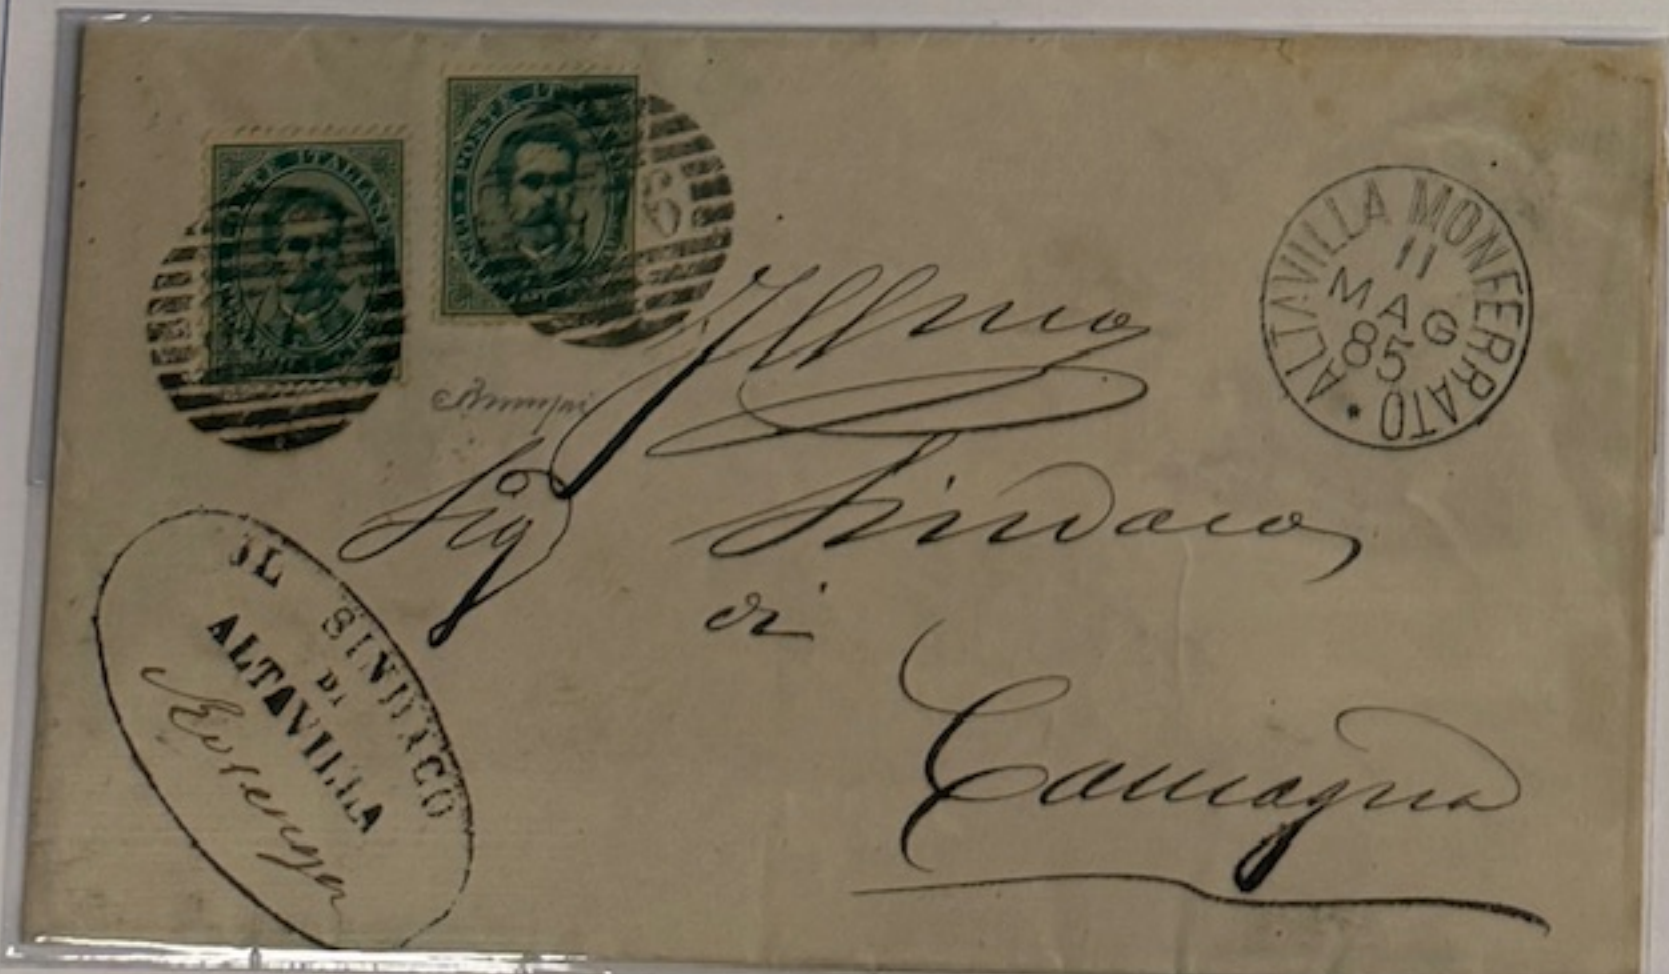 POSTE ITALIANE
POSTE IT
6
ALTAVILLA MONFERRATO
11
MAG
85
Illmo
Sig Sindaco
di
Camagna
IL SINDACO
DI
ALTAVILLA